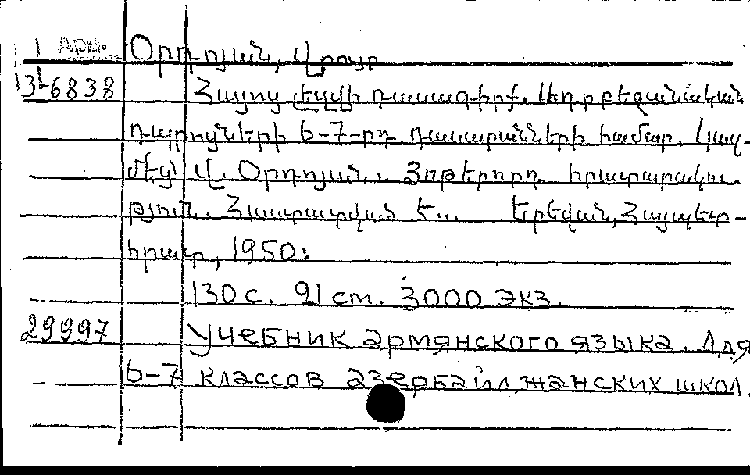 1 Арм.
13-6838
Օրդոյան, Վրույր
Հայոց լեզվի դասագիրք. Ադրբեջանական
դպրոցների 6-7-րդ դասարանների համար. Կազ-
մեց՝ Վ. Օրդոյան. Չորրորդ հրատարակու-
թյուն. Հաստատված է... Երեվան, Հայպետ-
հրատ, 1950:
130 с. 21 cm. 3000 экз.
29997
Учебник армянского языка. Для
6-7 классов азербайджанских школ.